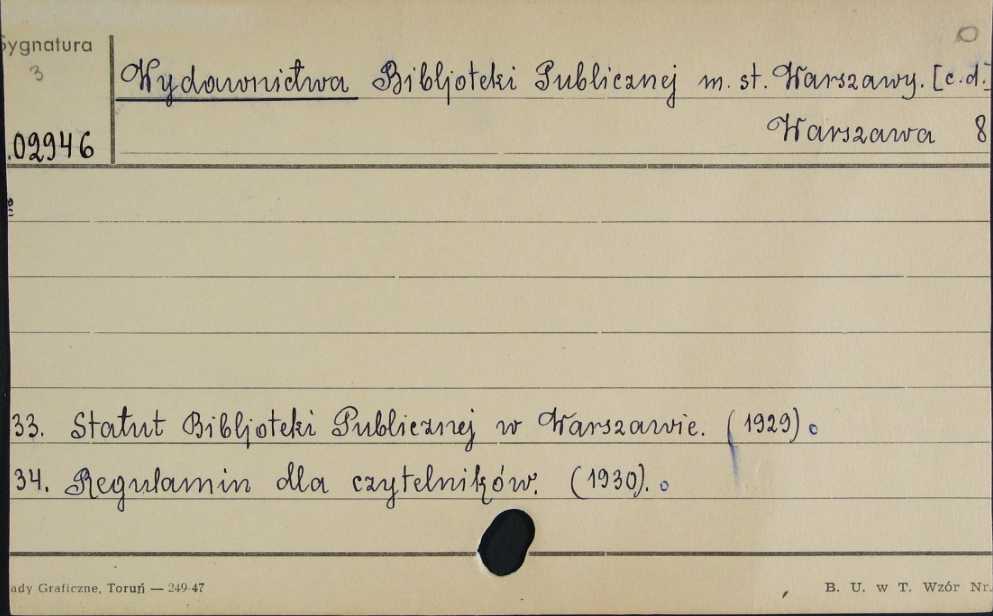 Sygnatura
3
Wydawnictwa Bibljoteki Publicznej m. st. Warszawy. [c.d.]
Warszawa 8
.02946
33. Statut Bibljoteki Publicznej w Warszawie. (1929)
34. Regulamin dla czytelników. (1930).
ady Graficzne, Toruń — 249-47
B. U. w T. Wzór Nr.